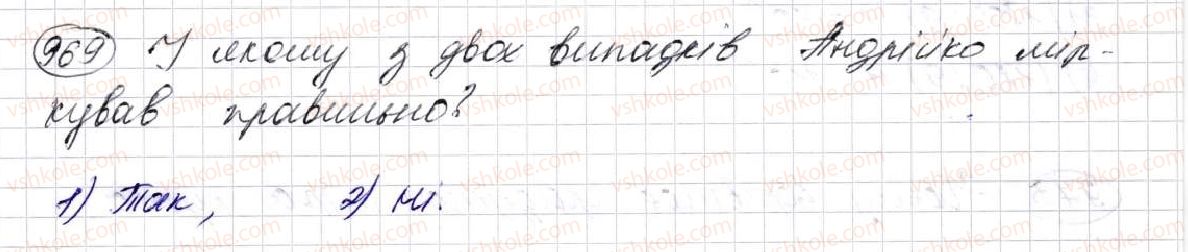 969 У якому з двох випадків Андрійко мір-
кував правильно?
1) Так, 2) Ні.